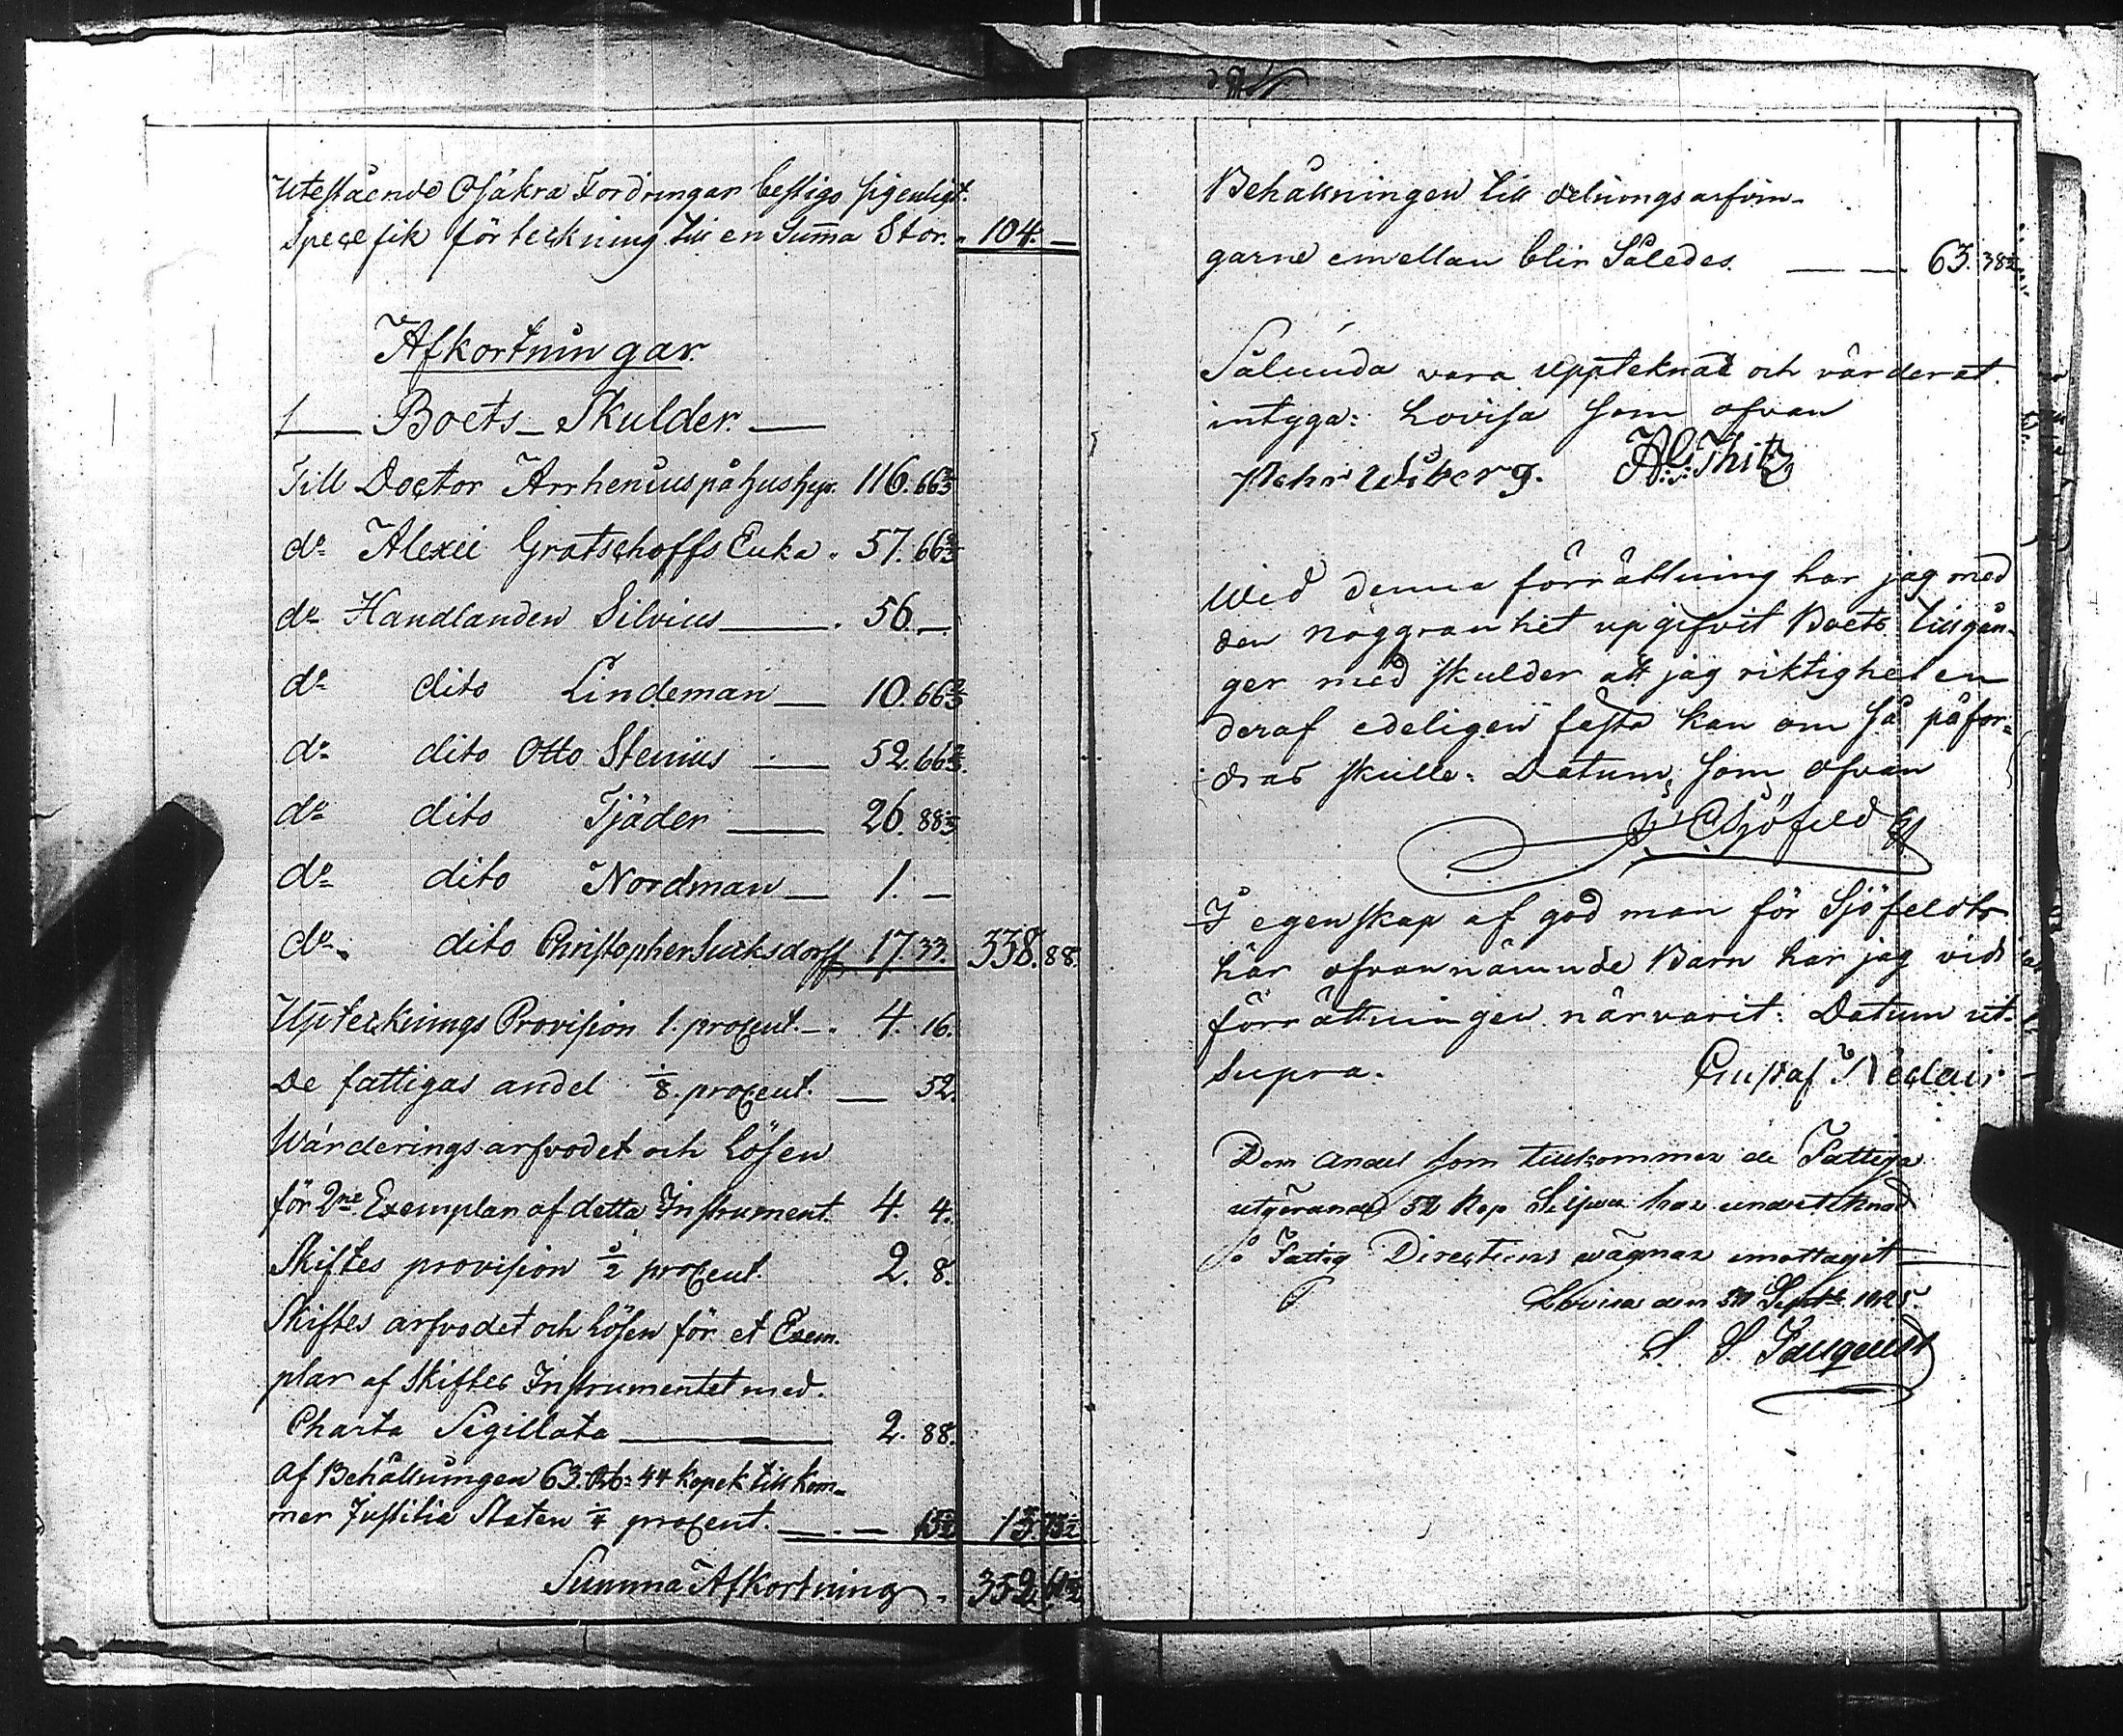 Utestående Osäkra Fordringar bestigo sig enligt
Specefik förteckning till en Summa Stor. 104. —
Afkortningar
1 — Boets Skulder. —
Till Doctor Arrhenius på hushyr. 116. 66⅔
do Alexei Gratschoffs Enka. 57. 66⅔
do Handlanden Silvius — 56. —
do dito Lindeman — 10. 66⅔
do dito Otto Stenius — 52. 66⅔.
do dito Tjäder — 26. 88⅓
do dito Nordman — 1. —
do dito Christopher Sucksdorff 17. 33. 338. 88.
Uptecknings Provision 1. procent. — 4. 16.
De fattigas andel ⅛. procent. — 52.
Wärderings arfvodet och Lösen
för 2ne Exemplar af detta Instrument. 4. 4.
Skiftes provision ½ procent. 2. 8.
Skiftes arfvodet och Lösen för et Exem-
plar af Skiftes Instrumentet med.
Charta Sigillata — 2. 88.
Af Behållningen 63. Rb: 44 kopek till kom-
mer Justitiæ Staten ¼ procent. —
Summa Afkortning.
Behållningen till delnings arfvin-
garne emellan blir Således. — 63. 38½
Sålunda vara Upptecknat och värderat
intyga: Lovisa Som ofvan
Pehr Wiberg.
Wid denna förrättning har jag med
den noggranhet upgifvit Boets tillgån-
ger med skulder att jag riktigheten
deraf edeligen fästa kan om så påfor-
dras skulle. Datum Som ofvan
Sjöfeld
I egenskap af god man för Sjöfeldts
här ofvannämnde Barn har jag vid
förrättningen närvarit: Datum ut-
supra. Gustaf
Den andel som tillkommer de Fattiga
utgörande 52 kop har undertecknad
å Fattig Directions wägnar emottagit
Lovisa den